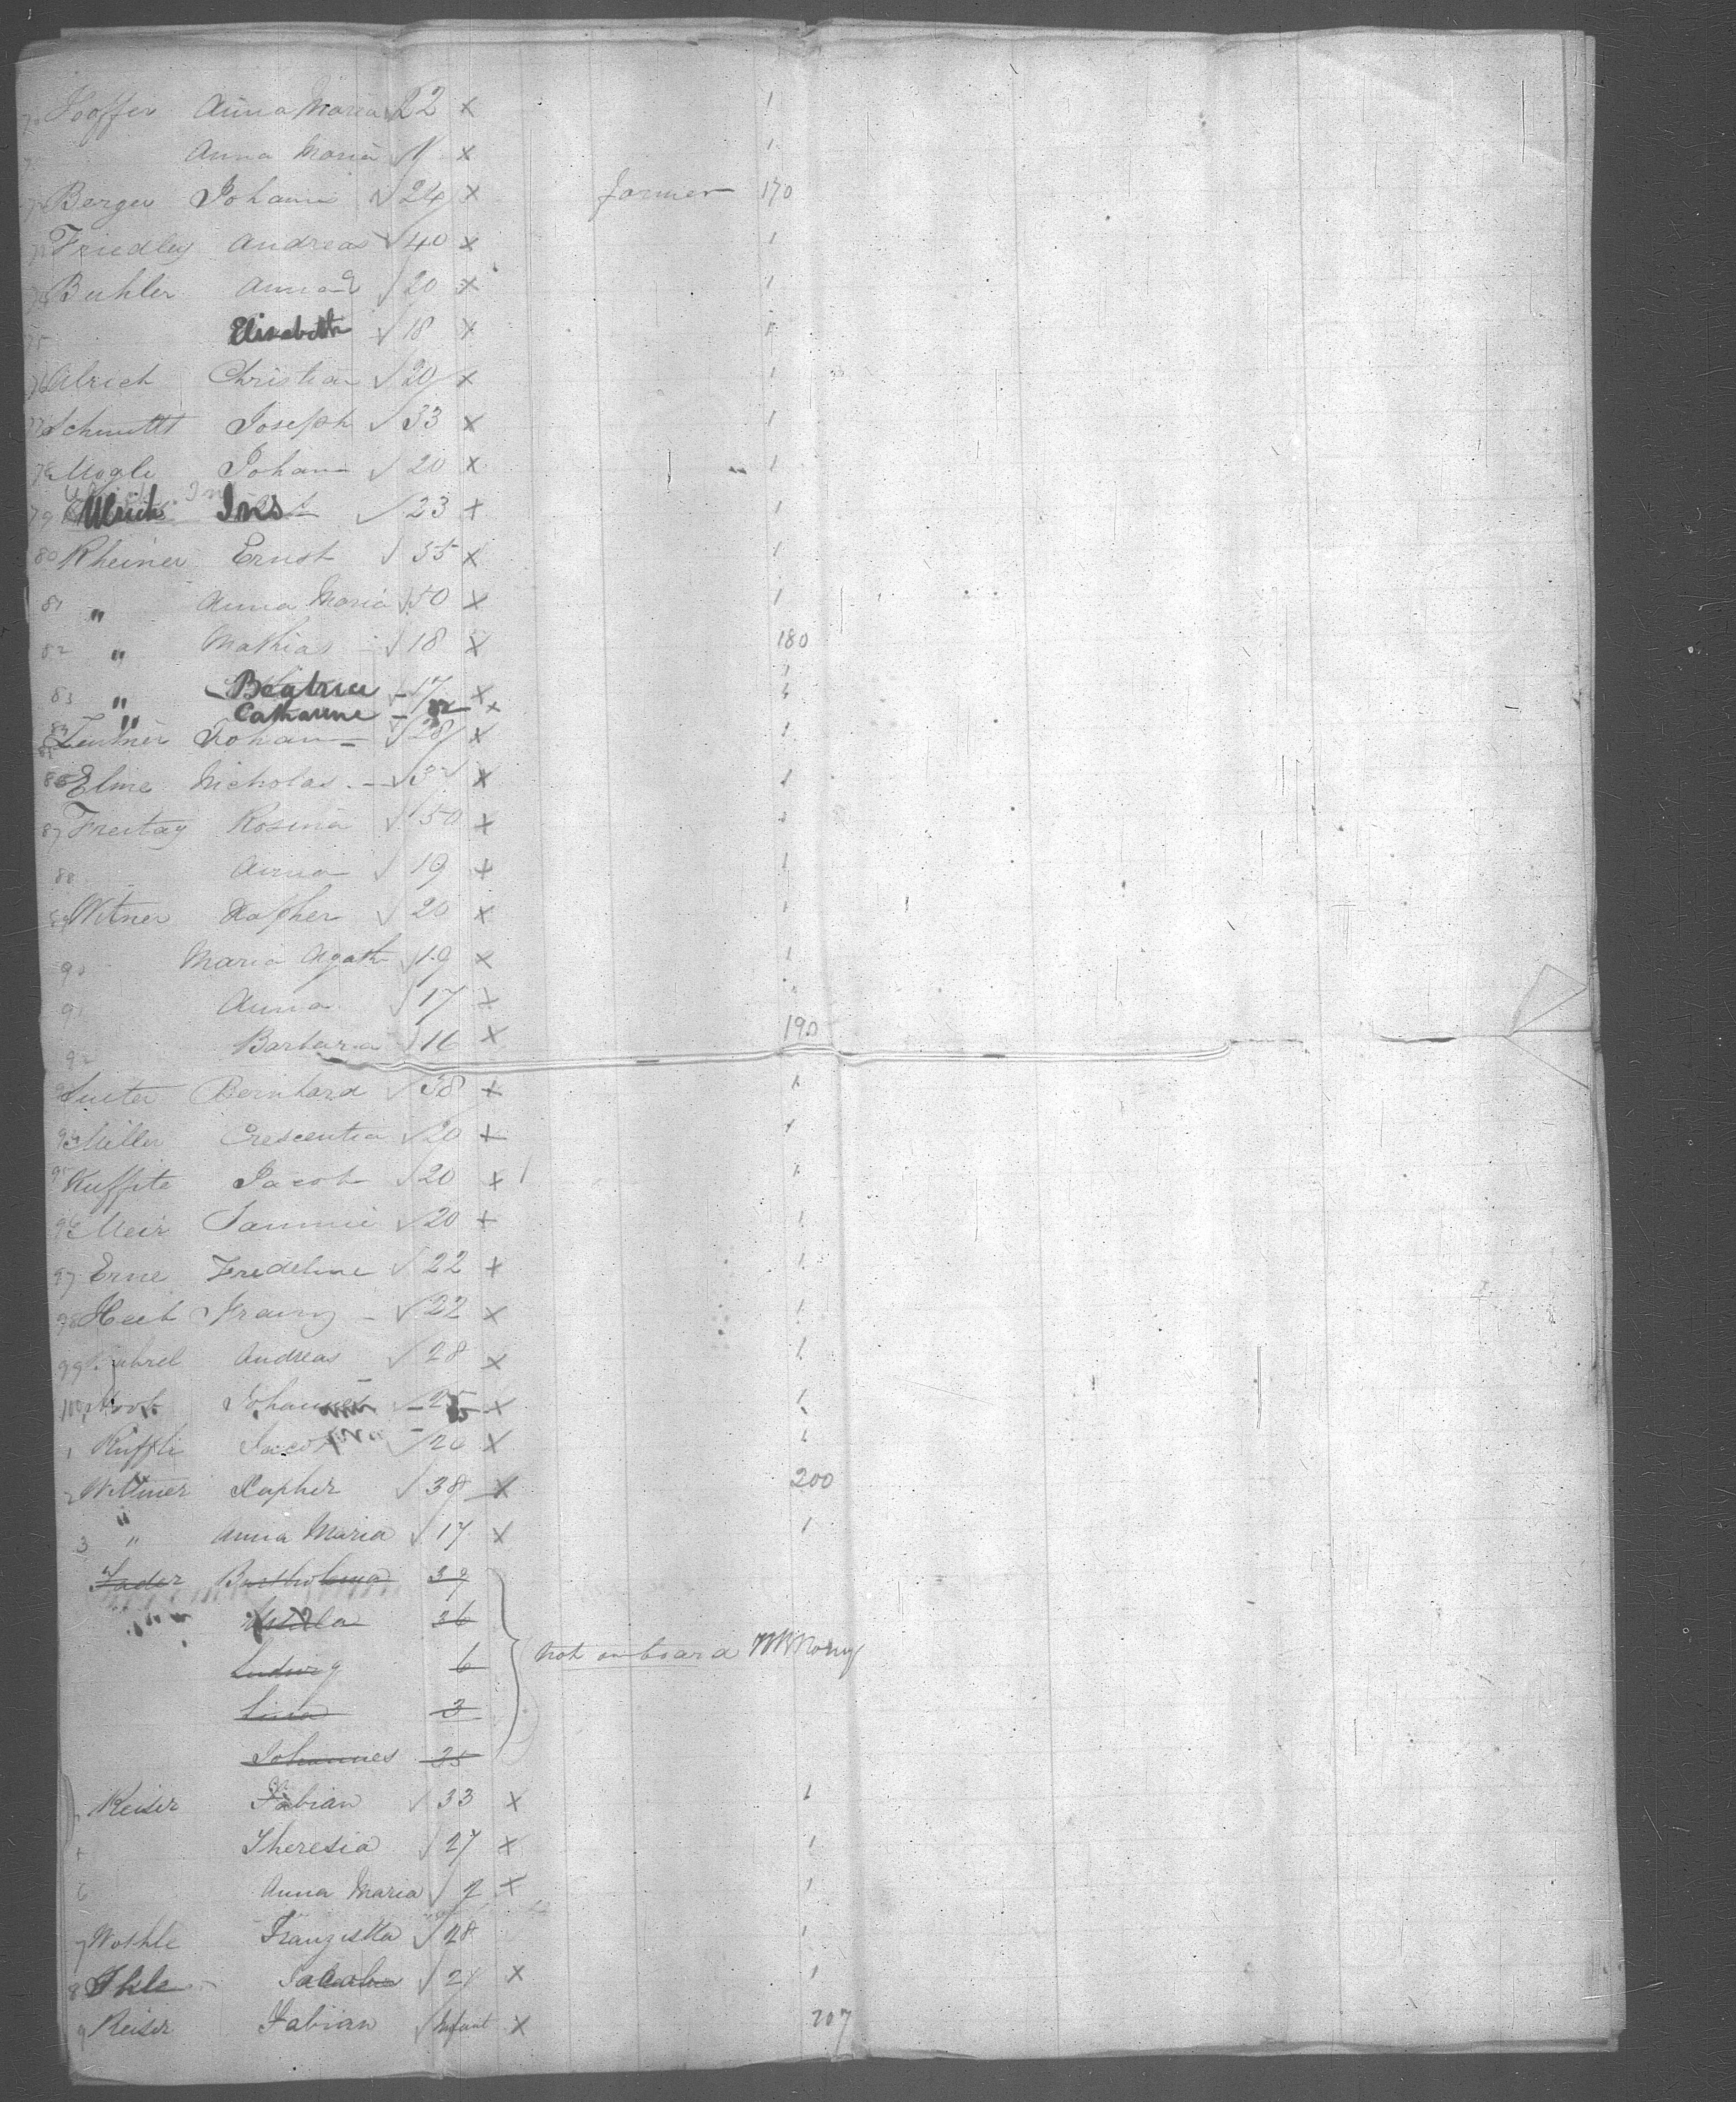 70 Hoffer Anna Maria √ 22 x 1
Anna Maria √ 11 x 1
Berger Johann √ 24 x farmer 170
Friedley Andreas √ 40 x 1
74 Buhler Anna √ 20 x 1
75 Elisabeth √ 18 x 1
76 Ulrich Christian √ 20 x 1
77 Schmitt Joseph √ 33 x 1
78 Mogli Johann √ 20 x 1
79 Ulrich Jns √ 23 x 1
80 Rheiner Ernst √ 55 x 1
81 " Anna Maria √ 50 x 1
82 " Mathias √ 18 x 180
83 " Beatrice - 17 x 1
84 " Catharine - x
85 Lentner Johann √ 28 x 1
86 Elme Nicholas √ x 1
87 Freitag Rosina √ 50 x 1
88 Anna √ 19 x 1
89 Witner Xapher √ 20 x 1
90 Maria Agath √ 19 x 1
91 Anna √ 17 x
92 Barbara √ 16 x 190
93 Suter Bernhard √ 38 x 1
94 Müller Crescentia √ 20 x 1
95 Kuffite Jacob √ 20 x 1
96 Meir √ 20 x 1
97 Erne Fredeline √ 22 x 1
98 Heeb Franz √ 22 x 1
99 Andreas √ 28 x 1
100 Johannes √ 25 x 1
1 Kuffli Jacob √ 20 x 1
2 Wittmer Xapher √ 38 x 200
3 " Anna Maria √ 17 x 1
Fader Bartholoma 39
36
Ludwig 6
not on board
Lina 3
Johannes 25
Keiser Fabian √ 33 x 1
Theresia √ 27 x 1
6 Anna Maria √ 2 x 1
7 Wothle Franziska √ 28 1
8 √ 21 x 1
9 Keiser Fabian √ Infant x 207